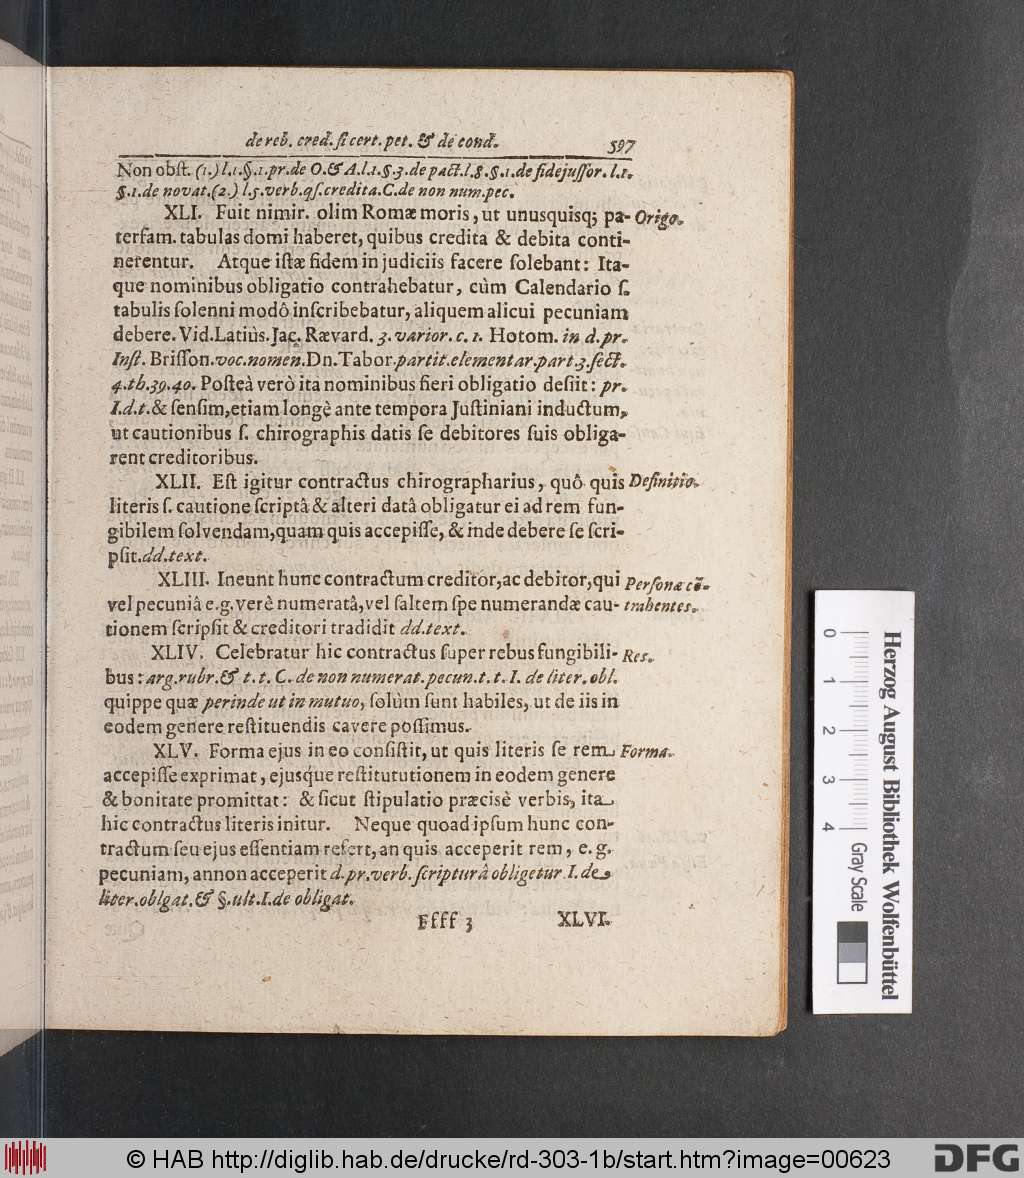 de reb. cred. si cert. pet. & de cond. 597
Non obst. (1.) l.1.§.1.pr.de O.& A.l.1.§.3.de pact.l.8.§.1.de fidejussor. l.1.
§.1.de novat.(2.) l.5.verb.qs.credita.C.de non num.pec.
XLI. Fuit nimir. olim Romæ moris, ut unusquisq; pa- Origo.
terfam. tabulas domi haberet, quibus credita & debita conti-
nerentur. Atque istæ fidem in judiciis facere solebant: Ita-
que nominibus obligatio contrahebatur, cùm Calendario s.
tabulis solenni modô inscribebatur, aliquem alicui pecuniam
debere. Vid. Latiùs. Jac. Rævard. 3. varior. c. 1. Hotom. in d. pr.
Inst. Brisson. voc. nomen. Dn. Tabor partit. elementar. part. 3. sect.
4. th. 39. 40. Posteà verò ita nominibus fieri obligatio desiit: pr.
I. d. t. & sensim, etiam longè ante tempora Justiniani inductum,
ut cautionibus s. chirographis datis se debitores suis obliga-
rent creditoribus.
XLII. Est igitur contractus chirographarius, quô quis Definitio.
literis s. cautione scriptâ & alteri datâ obligatur ei ad rem fun-
gibilem solvendam, quam quis accepisse, & inde debere se scri-
psit. dd. text.
XLIII. Ineunt hunc contractum creditor, ac debitor, qui Personæ cō-
vel pecuniâ e.g. verè numeratâ, vel saltem spe numerandæ cau- trahentes.
tionem scripsit & creditori tradidit dd. text.
XLIV. Celebratur hic contractus super rebus fungibili- Res.
bus: arg. rubr. & t. t. C. de non numerat. pecun. t. t. I. de liter. obl.
quippe quæ perinde ut in mutuo, solùm sunt habiles, ut de iis in
eodem genere restituendis cavere possimus.
XLV. Forma ejus in eo consistit, ut quis literis se rem Forma.
accepisse exprimat, ejusq́ue restitututionem in eodem genere
& bonitate promittat: & sicut stipulatio præcisè verbis, ita
hic contractus literis initur. Neque quoad ipsum hunc con-
tractum seu ejus essentiam refert, an quis acceperit rem, e. g.
pecuniam, annon acceperit d. pr. verb. scripturâ obligetur I. de
liter. oblgat. & §. ult. I. de obligat.
Ffff 3 XLVI.
0 1 2 3 4
Gray Scale
Herzog August Bibliothek Wolfenbüttel
© HAB http://diglib.hab.de/drucke/rd-303-1b/start.htm?image=00623
DFG